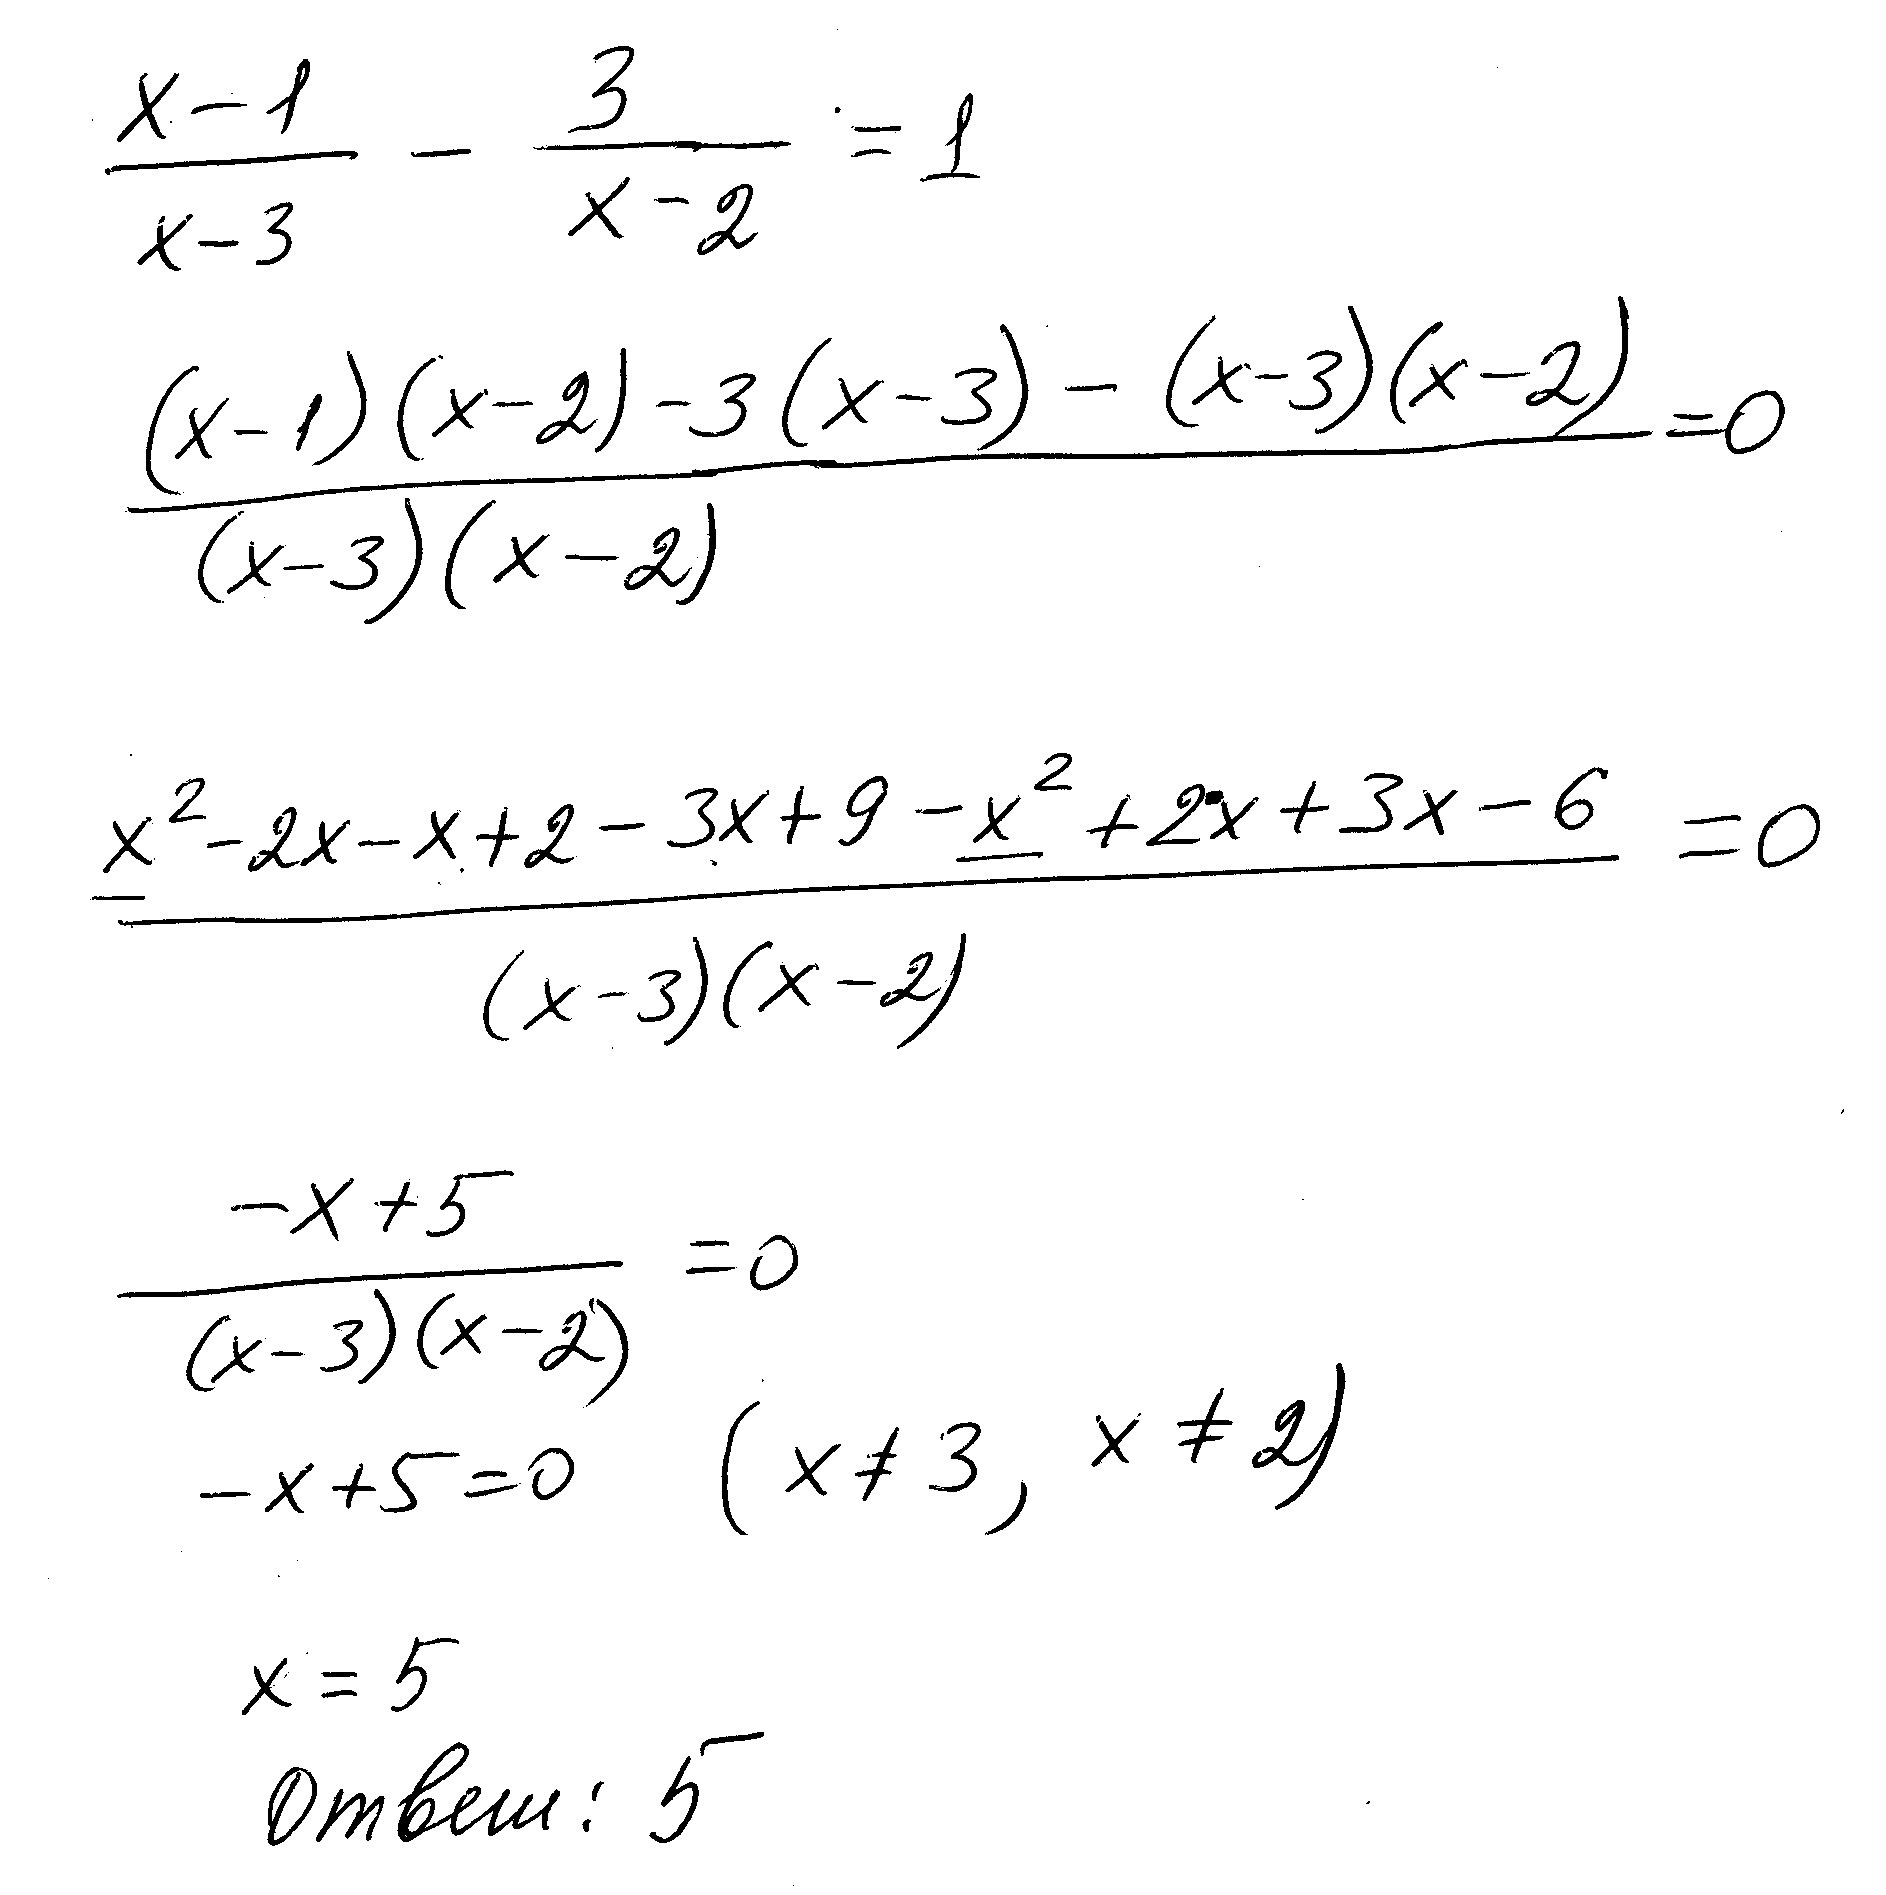 (x-1)/(x-3) - 3/(x-2) = 1
((x-1)(x-2)-3(x-3)-(x-3)(x-2))/((x-3)(x-2)) = 0
(x²-2x-x+2-3x+9-x²+2x+3x-6)/((x-3)(x-2)) = 0
(-x+5)/((x-3)(x-2)) = 0
-x+5=0 (x≠3, x≠2)
x=5
Ответ: 5